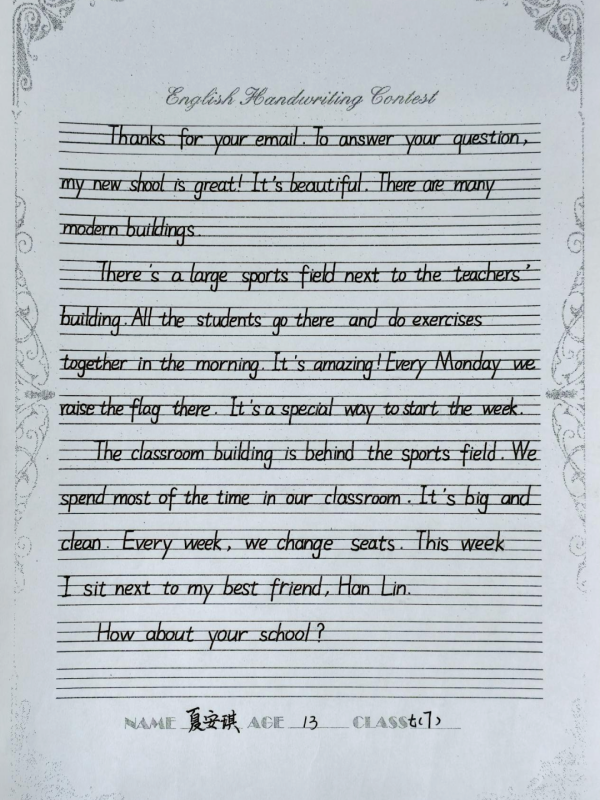 English Handwriting Contest
Thanks for your email. To answer your question,
my new shool is great! It's beautiful. There are many
modern buildings.
There's a large sports field next to the teachers'
building. All the students go there and do exercises
together in the morning. It's amazing! Every Monday we
raise the flag there. It's a special way to start the week.
The classroom building is behind the sports field. We
spend most of the time in our classroom. It's big and
clean. Every week, we change seats. This week
I sit next to my best friend, Han Lin.
How about your school?
NAME 夏安琪 AGE 13 CLASS七(7)